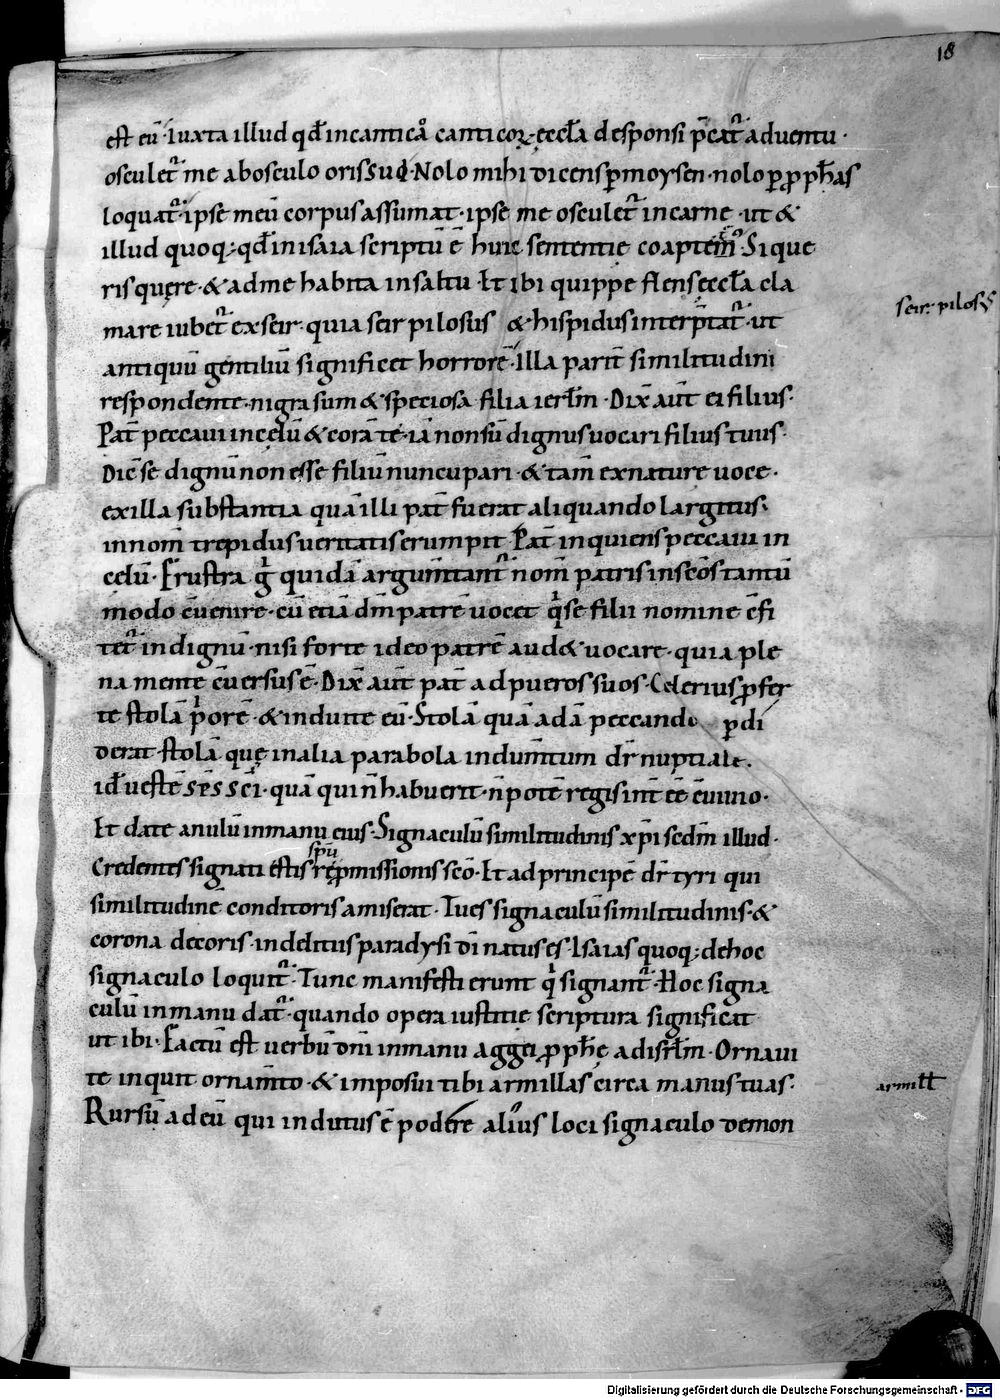 18
est eū· Iuxta illud qđ in cantico cantico⁊ eccła de sponsi p̄catᷣ aduentu·
osculetᷣ me ab osculo oris suo· Nolo mihi dicens ꝑ moysen· nolo ꝑ ꝓph̄as
loquatᷣ· ipse meū corpus assumat· ipse me osculetᷣ in carne· ut &
illud quoq;· qđ in isaia scriptū ē huic sententie coaptem᷒· Si que
ris quęre· & ad me habita in saltu· Et ibi quippe flens eccła cla
mare iubetᷣ ex seir· quia seir pilosus & hispidus interp̄tatᷣ· ut
antiquū gentiliū significet horrorē· Illa parit̄ similitudini
respondente· nigra sum & speciosa filia ierłm· Dix̄ aūt ei filius·
Pat̄ peccaui in cęlū & corā te· iā non sū dignus uocari filius tuus·
Dic̄ se dignū non esse filiū nuncupari· & tam̄ ex naturę uoce·
ex illa substantia quā illi pat̄ fuerat aliquando largitus·
in nom̄ trepidus ueritatis erumpit· Pat̄ inquiens peccaui in
cęlū· Frustra gͥ quidā argum̄tantᷣ nom̄ patris in sc̄os tantū
modo c̄uenire· cū etiā dm̄ patrē uocet qͥ se filii nomine c̄fi
tetᷣ indignū· nisi forte ideo patrē aud& uocare· quia ple
na mente c̄uersus ē· Dix̄ aūt pat̄ ad pueros suos· Celerius ꝓfer
te stolā pͥorē· & induite eū· Stolā quā adā peccando ꝑdi
derat· stolā quę in alia parabola indum̄tum dr̄ nuptiale·
id̄ uestē sp̄s sc̄i· quā qui n̄ habuerit· n̄ potē regis int̄eē c̄uiuio·
Et date anulū in manu eius· Signaculū similitudinis xp̄i scd̄m illud·
spū
Credentes signati estis rępmissionis sc̄o· Et ad principē dr̄ tyri qui
similitudinē conditoris amiserat· Tu es signaculū similitudinis· &
corona decoris· in delitiis paradysi d̄i natus es· Isaias quoq; de hoc
signaculo loquitᷣ· Tunc manifesti erunt qͥ signantᷣ· Hoc signa
culū in manu datᷣ· quando opera iustitię scriptura significat
ut ibi· Factū est uerbū dn̄i in manu aggei ꝓph̄ę ad isrłm· Ornaui
te inquit ornam̄to· & imposui tibi armillas circa manus tuas·
Rursū ad eū qui indutus ē podere alius loci signaculo demon
seir· pilos᷒
armiłł
Digitalisierung gefördert durch die Deutsche Forschungsgemeinschaft - DFG